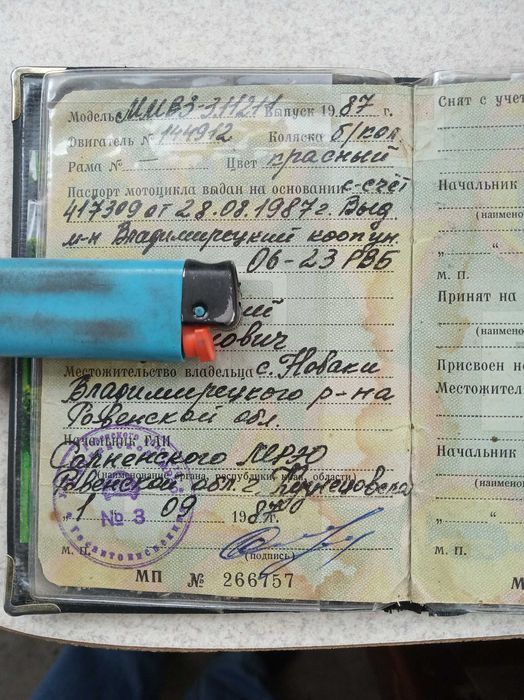 Модель ММВЗ-311211 Выпуск 1987 г.
Двигатель № 144912 Коляска б/кол
Рама № — Цвет красный
Паспорт мотоцикла выдан на основании с-счёт
417309 от 28.08.1987 г. Выд
м-н Владимирецкий кооп ун.
06-23 РВБ
ий
ович
Местожительство владельца с. Новаки
Владимирецкого р-на
Ровенской обл.
Начальник ГАИ
Сарненского МРЭО
(наименование органа, республики, края, области)
" 1 " 09 1987
№ 3
м. п. (подпись)
МП № 266757
Снят с учет
Начальник
(наимено
"
м. п.
Принят на
(наимено
Присвоен но
Местожител
Начальник
(наимено
"
м. п.
М